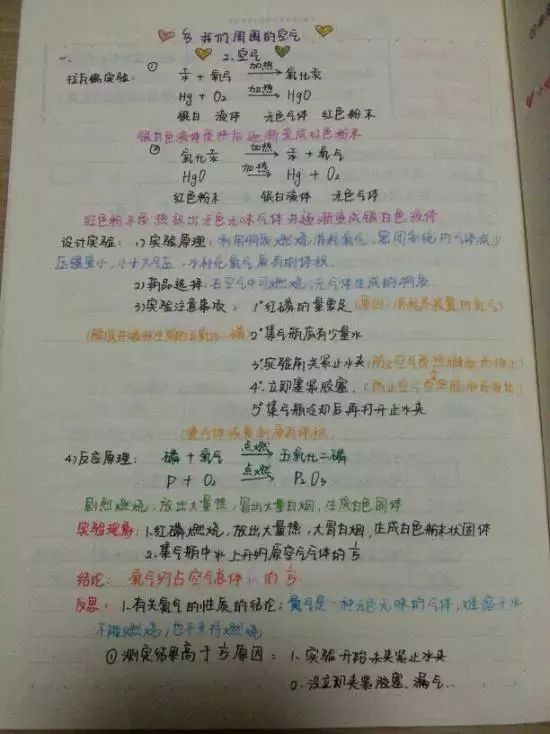 我们周围的空气
2.空气
一.
拉瓦锡实验: ① 汞 + 氧气 加热 氧化汞
Hg + O2 加热 HgO
银白 液体 无色气体 红色粉末
银白色液体受热后逐渐变成红色粉末
② 氧化汞 加热 汞 + 氧气
HgO 加热 Hg + O2
红色粉末 银白液体 无色气体
红色粉末受热放出无色无味气体并逐渐变成银白色液体
设计实验: 1)实验原理: 利用物质燃烧消耗氧气,密闭系统内气体减少
压强变小,小于大气压,水补充氧气原有的体积
2)药品选择: 在空气中可燃烧,无气体生成的物质
3)实验注意事项: 1°红磷的量要足 (原因:消耗尽装置内氧气)
2°集气瓶底有少量水
3°实验前夹紧止水夹
4°立即塞紧胶塞.
5°集气瓶冷却后再打开止水夹
4)反应原理: 磷 + 氧气 点燃 五氧化二磷
P + O2 点燃 P2O5
剧烈燃烧,放出大量热,冒出大量白烟,生成白色固体
实验现象: 1.红磷燃烧,放出大量热,大冒白烟,生成白色粉末状固体
2.集气瓶中水上升约原空气气体的1/5
结论: 氧气约占空气总体积的1/5
反思: 1.有关氮气的性质的结论: 氮气是一种无色无味的气体,难溶于水
不能燃烧,也不支持燃烧
①测定结果高于1/5原因: 1.实验开始未夹紧止水夹
2.没立即夹紧胶塞.漏气..